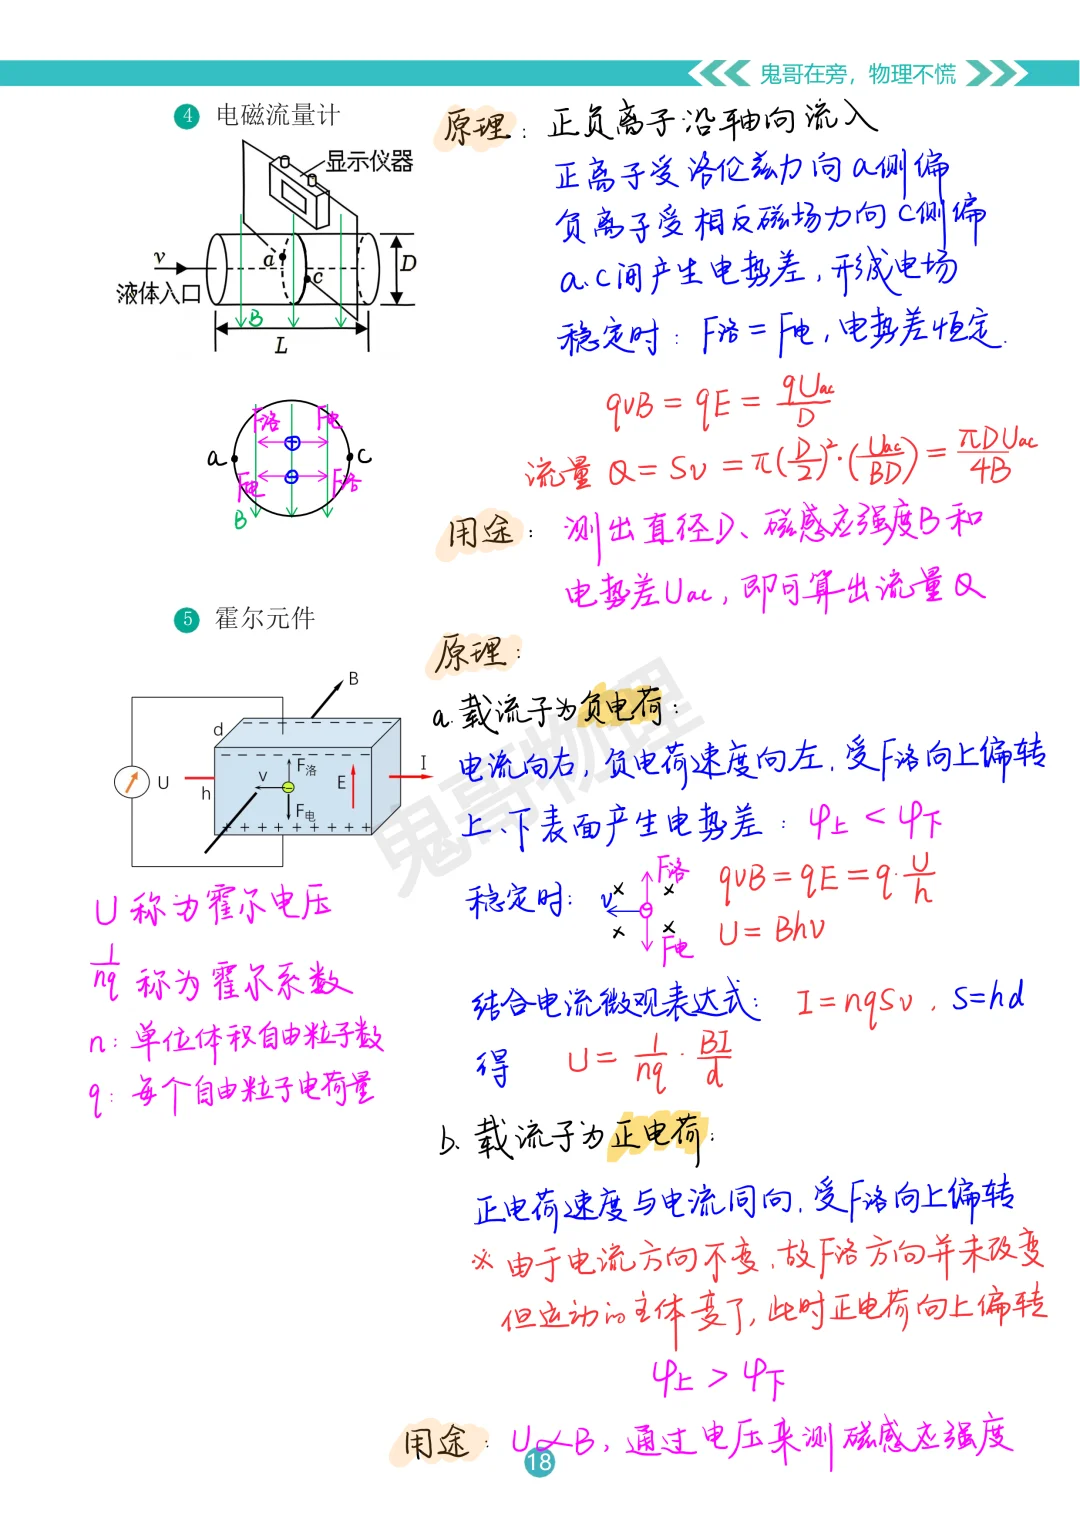 鬼哥在旁，物理不慌
4 电磁流量计
显示仪器
v
液体入口
a
c
D
B
L
原理：正负离子沿轴向流入
正离子受洛伦兹力向a侧偏
负离子受相反磁场力向c侧偏
a、c间产生电势差，形成电场
稳定时：F洛=F电，电势差恒定.
qvB = qE = qUac/D
流量 Q = Sv = π(D/2)²·(Uac/BD) = πDUac/4B
F洛 F电
a
c
F电 F洛
B
用途：测出直径D、磁感应强度B和
电势差Uac，即可算出流量Q
5 霍尔元件
B
d
U
h
v
F洛
F电
E
I
U称为霍尔电压
1/nq 称为霍尔系数
n：单位体积自由粒子数
q：每个自由粒子电荷量
原理：
a.载流子为负电荷：
电流向右，负电荷速度向左，受F洛向上偏转
上、下表面产生电势差：φ上 < φ下
稳定时：
v
F洛
F电
qvB = qE = q·U/h
U = Bhv
结合电流微观表达式：I=nqSv，S=hd
得 U = 1/nq · BI/d
b.载流子为正电荷：
正电荷速度与电流同向，受F洛向上偏转
※由于电流方向不变，故F洛方向并未改变
但运动的主体变了，此时正电荷向上偏转
φ上 > φ下
用途：U∝B，通过电压来测磁感应强度
鬼哥物理
18